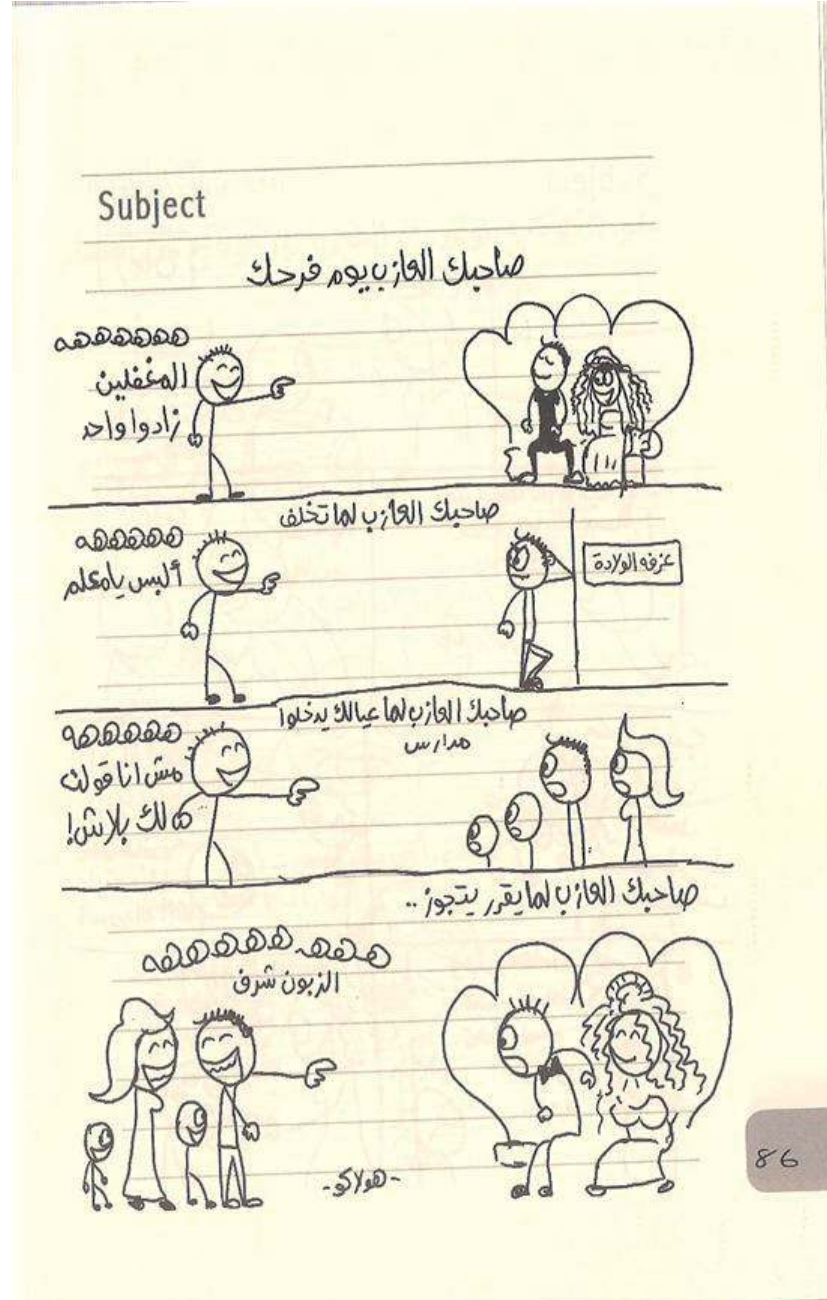 Subject
صاحبك العازب يوم فرحك
هههههههه
المغفلين
زادوا واحد
صاحبك العازب لما تخلف
هههههههه
ألبس يا معلم
غرفه الولادة
صاحبك العازب لما عيالك يدخلوا
مدارس
هههههههه
مش انا قولت
لك بلاش!
صاحبك العازب لما يقرر يتجوز ..
هههه هههههههه
الزبون شرف
-هولاكو-
86